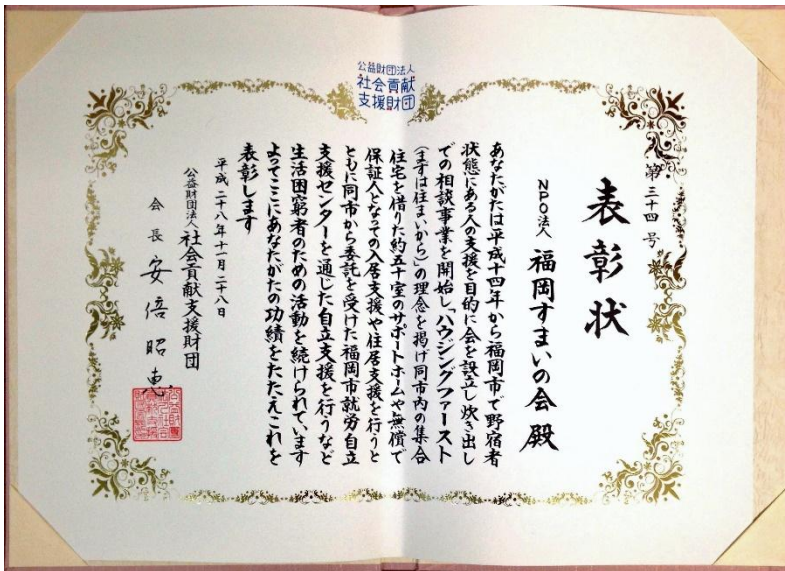 公益財団法人
社会貢献
支援財団
第三十四号
表彰状
NPO法人 福岡すまいの会 殿
あなたがたは平成十四年から福岡市で野宿者
状態にある人の支援を目的に会を設立し炊き出し
での相談事業を開始し「ハウジングファースト
(まずは住まいから)」の理念を掲げ同市内の集合
住宅を借りた約五十室のサポートホームや無償で
保証人となっての入居支援や住居支援を行うと
ともに同市から委託を受けた福岡市就労自立
支援センターを通じた自立支援を行うなど
生活困窮者のための活動を続けられています
よってここにあなたがたの功績をたたえこれを
表彰します
平成二十八年十一月二十八日
公益財団法人 社会貢献支援財団
会長 安倍昭恵